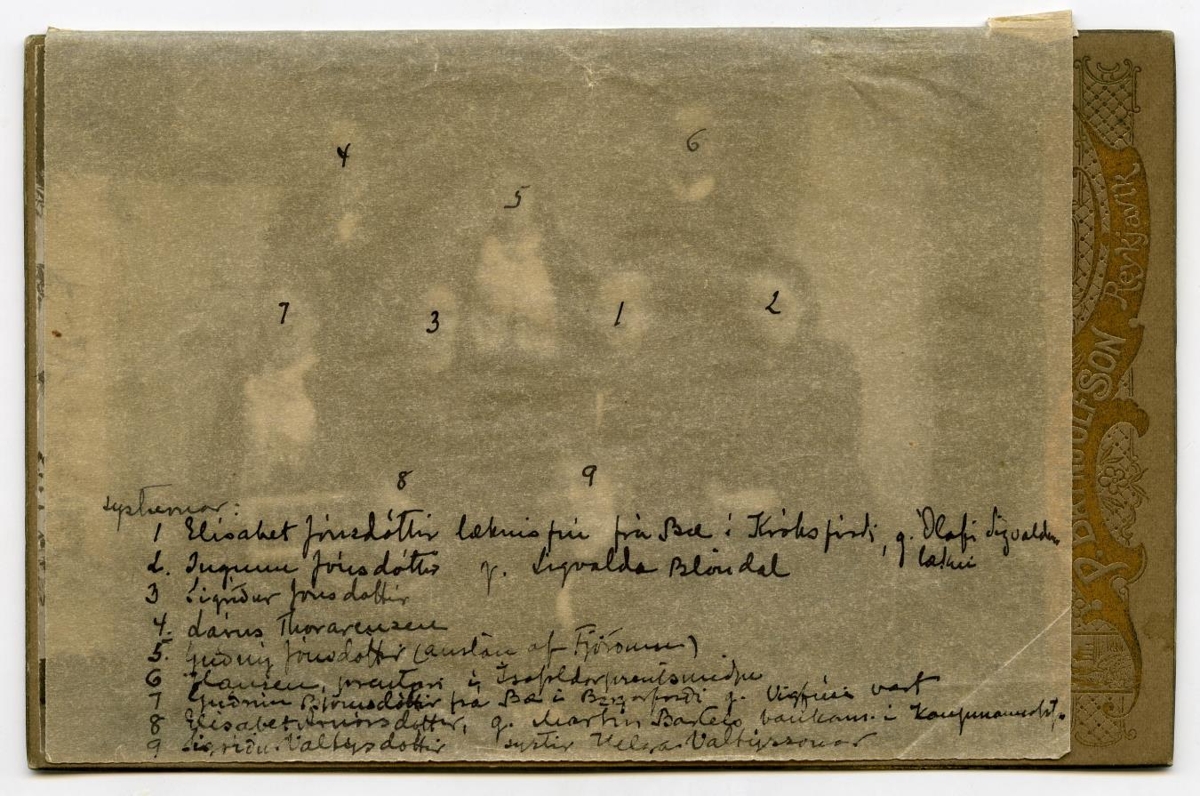 4
6
5
7
3
1
2
8
9
systurnar:
1 Elisabet Jónsdóttir læknisfrú frá Bæ í Króksfirði, g. Ólafi Sigvaldas.
lækni
2. Ingunn Jónsdóttir g. Sigvalda Blöndal
3 Sigríður Jónsdóttir
4. Lárus Thorarensen
5. Guðný Jónsdóttir (austan af Fjörðum)
6 Clausen, prentari í Ísafoldarprentsmiðju
7 Guðrún Björnsdóttir frá Bæ í Borgarfirði g. Vigfúsi vert
8 Elísabet Arnórsdóttir, g. Martin Bartels bankam. í Kaupmannah.
9 Sigríður Valtýsdóttir systir Helga Valtýssonar
P. BRYNJOLFSSON Reykjavik